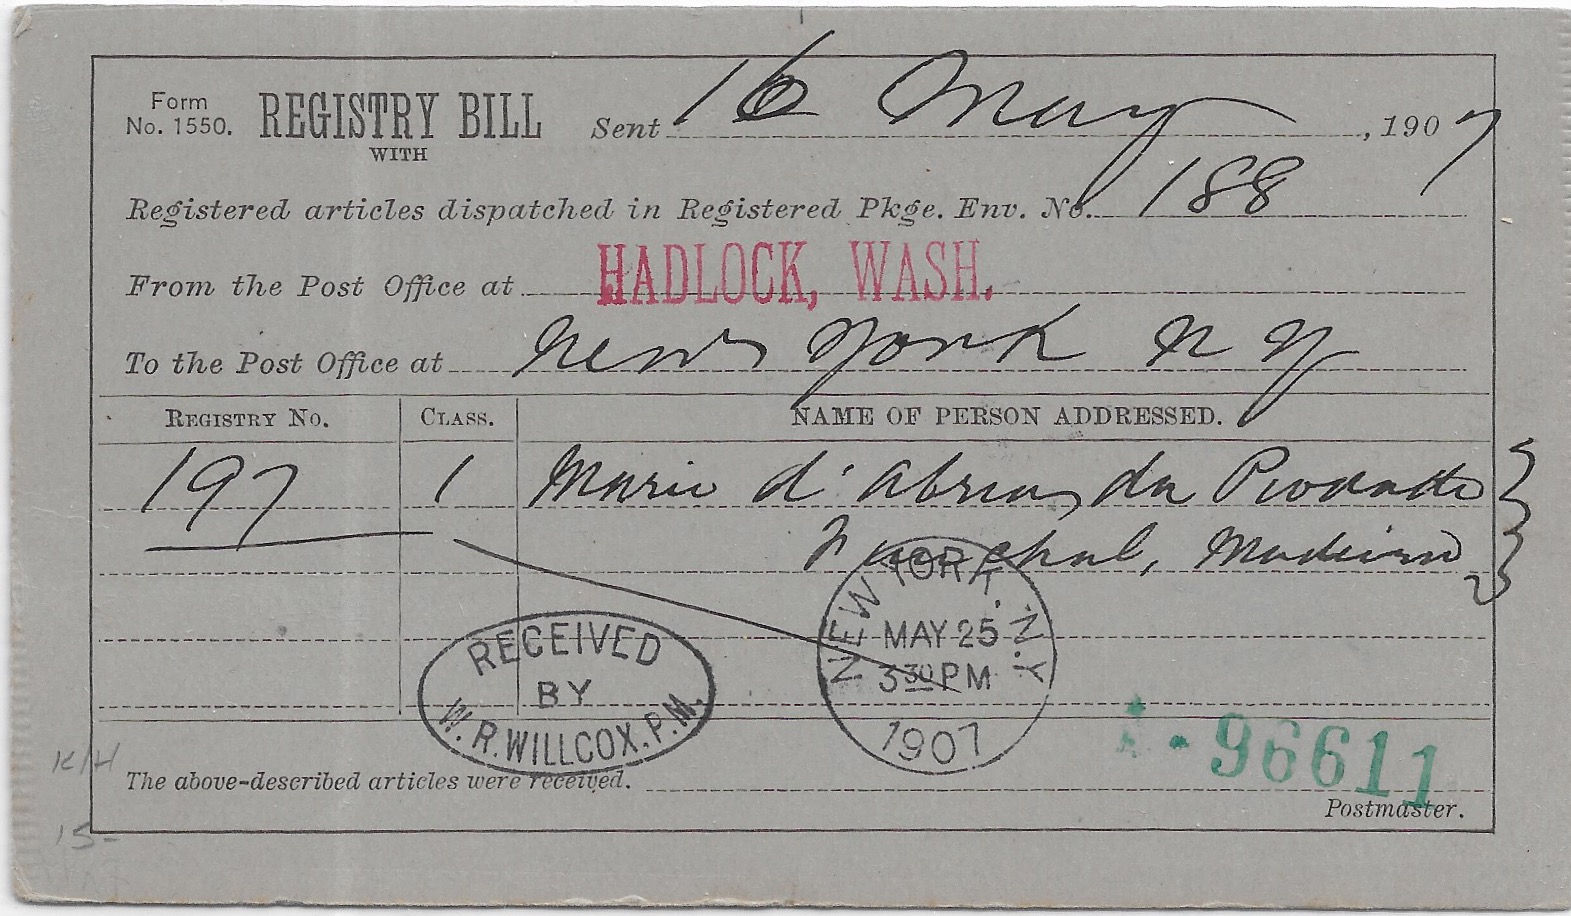 Form
No. 1550.
REGISTRY BILL
WITH
Sent 16 May, 1907
Registered articles dispatched in Registered Pkge. Env. No. 188
From the Post Office at HADLOCK, WASH.
To the Post Office at New York N Y
REGISTRY No. CLASS. NAME OF PERSON ADDRESSED.
197 1 Maria d'Abreu, da
Funchal, Madeira
RECEIVED
BY
W. R. WILLCOX. P. M.
NEW YORK, N.Y.
MAY 25
3 30 PM
1907
96611
K/H
The above-described articles were received.
Postmaster.
15-